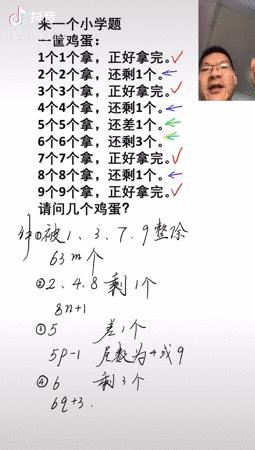 抖音
来一个小学题
一筐鸡蛋：
1个1个拿，正好拿完。✓
2个2个拿，还剩1个。←
3个3个拿，正好拿完。✓
4个4个拿，还剩1个。←
5个5个拿，还差1个。←
6个6个拿，还剩3个。←
7个7个拿，正好拿完。✓
8个8个拿，还剩1个。←
9个9个拿，正好拿完。✓
请问几个鸡蛋？
①被1、3、7、9整除
63m个
②2、4、8剩1个
8n+1
③5 差1个
5P-1 尾数为4或9
④6 剩3个
6q+3.